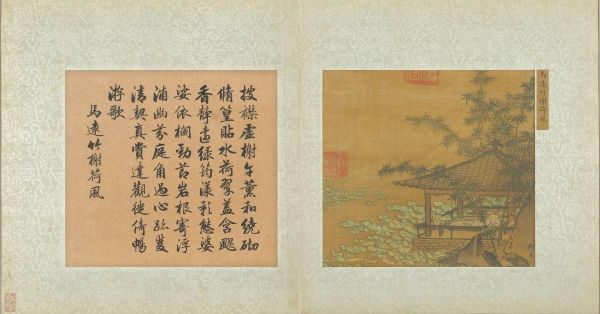 馬遠竹榭荷風
披襟虛榭午薰和繞砌
脩篁貼水荷翠蓋含颸
香靜遠綠筠漾影態婆
娑依欄勁節岩根寄浮
浦幽芬庭角過心跡雙
清契真賞達觀徙倚暢
游歌
馬遠竹榭荷風